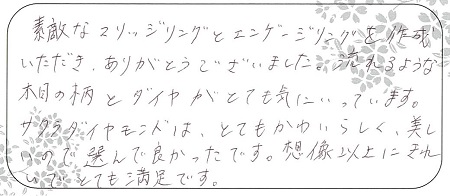 素敵なマリッジリングとエンゲージリングを作成
いただきありがとうございました。流れるような
木目の柄とダイヤがとても気にいっています。
サクラダイヤモンドは、とてもかわいらしく、美し
いので選んで良かったです。想像以上にきれ
いでとても満足です。